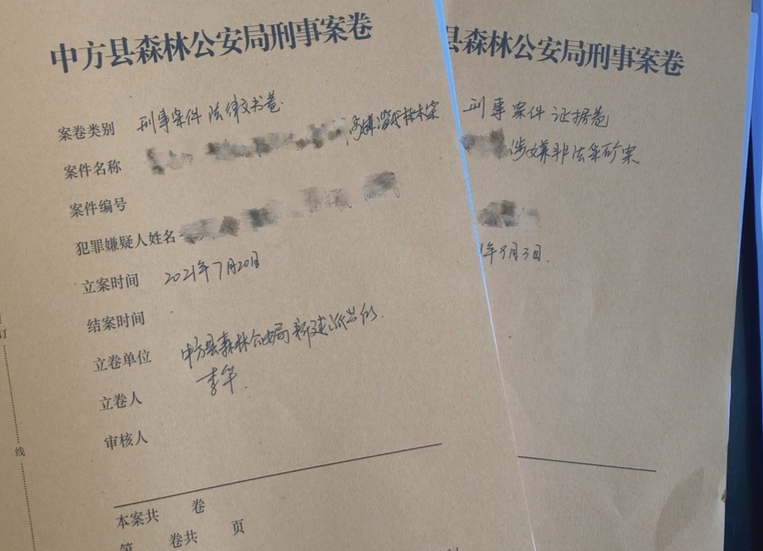 中方县森林公安局刑事案卷
案卷类别 刑事案件法律文书卷
案件名称 涉嫌滥伐林木案
案件编号
犯罪嫌疑人姓名
立案时间 2021年7月20日
结案时间
立卷单位 中方县森林公安局新建派出所
立卷人 李华
审核人
本案共 卷
第 卷共 页
订
线
县森林公安局刑事案卷
刑事案件证据卷
涉嫌非法采矿案
年9月3日.